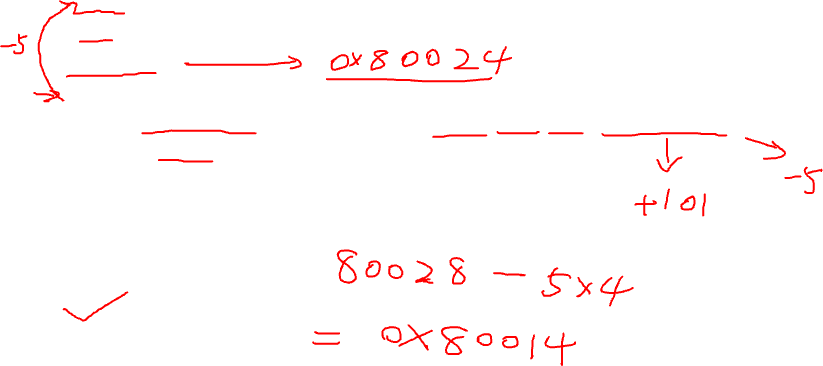 -5
0x80024
-5
+101
80028 - 5x4
= 0x80014